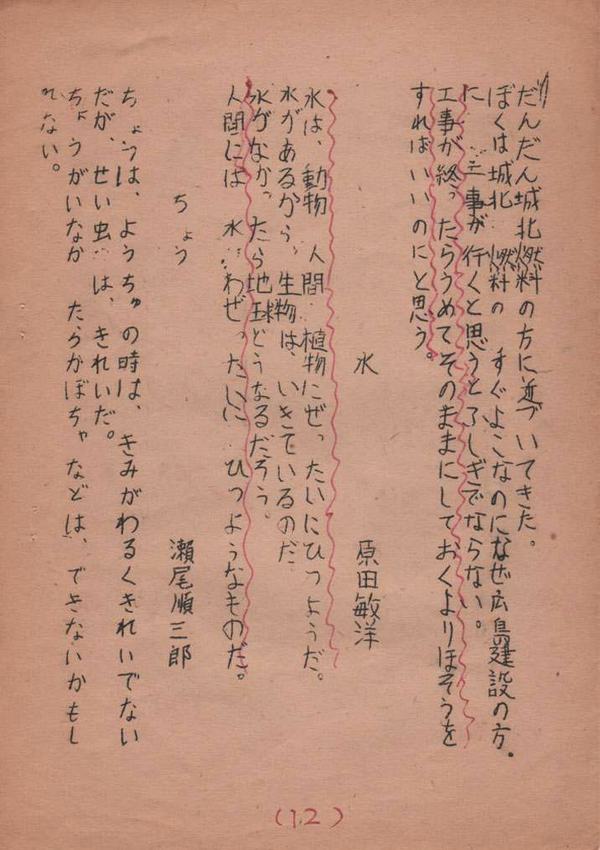 だんだん城北燃料の方に近づいてきた。
ぼくは城北燃料の すぐよこなのになぜ広島建設の方
に 工事が行くと思うとふしぎでならない。
工事が終ったらうめてそのままにしておくよりほそうを
すればいいのにと思う。
水
原田敏洋
水は、動物 人間 植物にぜったいにひつようだ。
水があるから、生物は、いきているのだ
水がなかったら地球どうなるだろう。
人間には 水 わぜったいに ひつようなものだ。
ちょう
瀬尾順三郎
ちょうは、ようちゅの時は、きみがわるくきれいでない
だが、せい虫は、きれいだ。
ちょうがいなかったらかぼちゃなどは、できないかもし
れない。
(12)